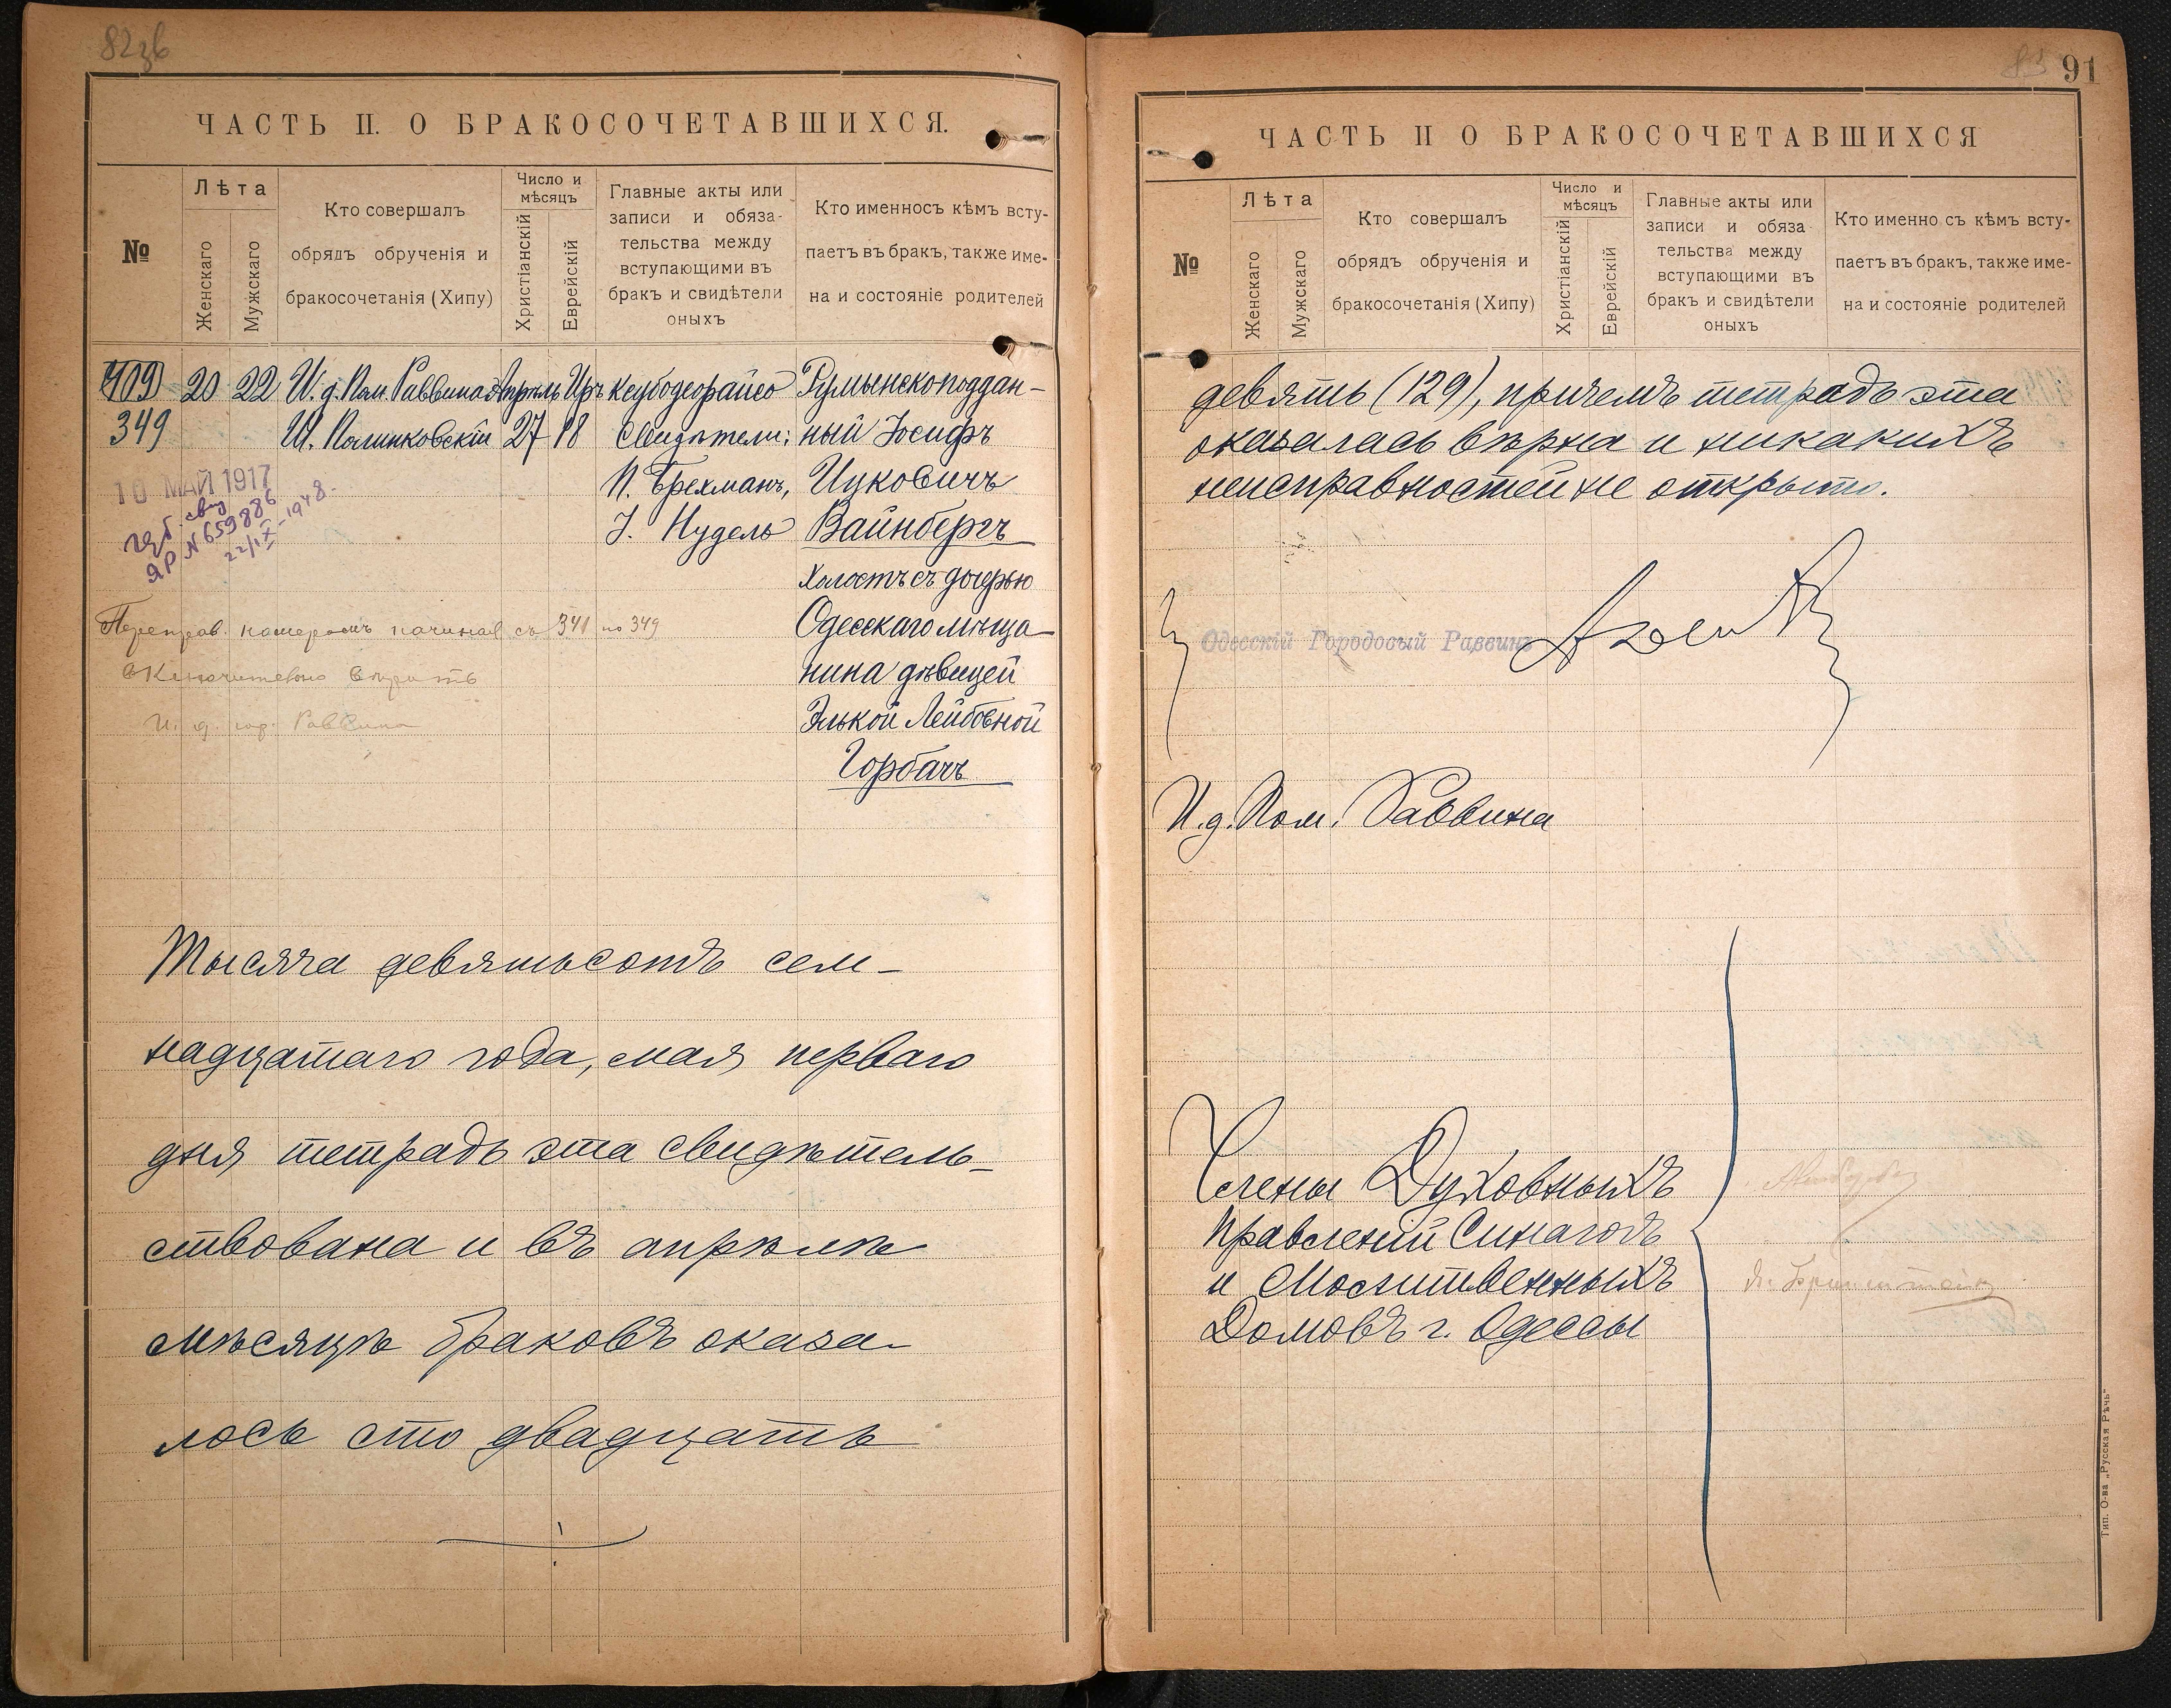 82зв
ЧАСТЬ II. О БРАКОСОЧЕТАВШИХСЯ.
№
Лѣта
Женскаго
Мужскаго
Кто совершалъ
обрядъ обрученія и
бракосочетанія (Хипу)
Число и
мѣсяцъ
Христіанскій
Еврейскій
Главные акты или
записи и обяза-
тельства между
вступающими въ
бракъ и свидѣтели
оныхъ
Кто именносъ кѣмъ всту-
паетъ въ бракъ, также име-
на и состояніе родителей
409 20 22 И. д. Пом. Раввина Апрѣль Иръ Ксубодеорайсо Румынскоподдан-
349 Ш. Полинковскій 27 18 Свидѣтели: ный Іосифъ
10 МАЙ 1917
П. Брехманъ, Ицковичъ
І. Нудель Вайнбергъ
свид
ЯР № 659886
22/IX-1948.
Холостъ съ дочерью
Одесскаго мѣща-
нина дѣвицей
Элькой Лейбовной
Горбачъ
Переправ. номеромъ начиная съ 341 по 349
включительно вѣрить
И. д. гор. Раввина
Тысяча девятьсотъ сем-
надцатаго года, мая перваго
дня тетрадь эта свидѣтель-
ствована и въ апрѣлѣ
мѣсяцѣ браковъ оказа-
лось сто двадцать
91
ЧАСТЬ II О БРАКОСОЧЕТАВШИХСЯ
№
Лѣта
Женскаго
Мужскаго
Кто совершалъ
обрядъ обрученія и
бракосочетанія (Хипу)
Число и
мѣсяцъ
Христіанскій
Еврейскій
Главные акты или
записи и обяза
тельства между
вступающими въ
бракъ и свидѣтели
оныхъ
Кто именно съ кѣмъ всту-
паетъ въ бракъ, также име-
на и состояніе родителей
девять (129), причемъ тетрадь эта
оказалась вѣрна и никакихъ
неисправностей не открыто.
Одесскій Городовый Раввинъ
И. д. Пом. Раввина
Члены Духовныхъ
Правленій Синагогъ
и Молитвенныхъ
Домовъ г. Одессы
Тип. О-ва „Русская Рѣчь"